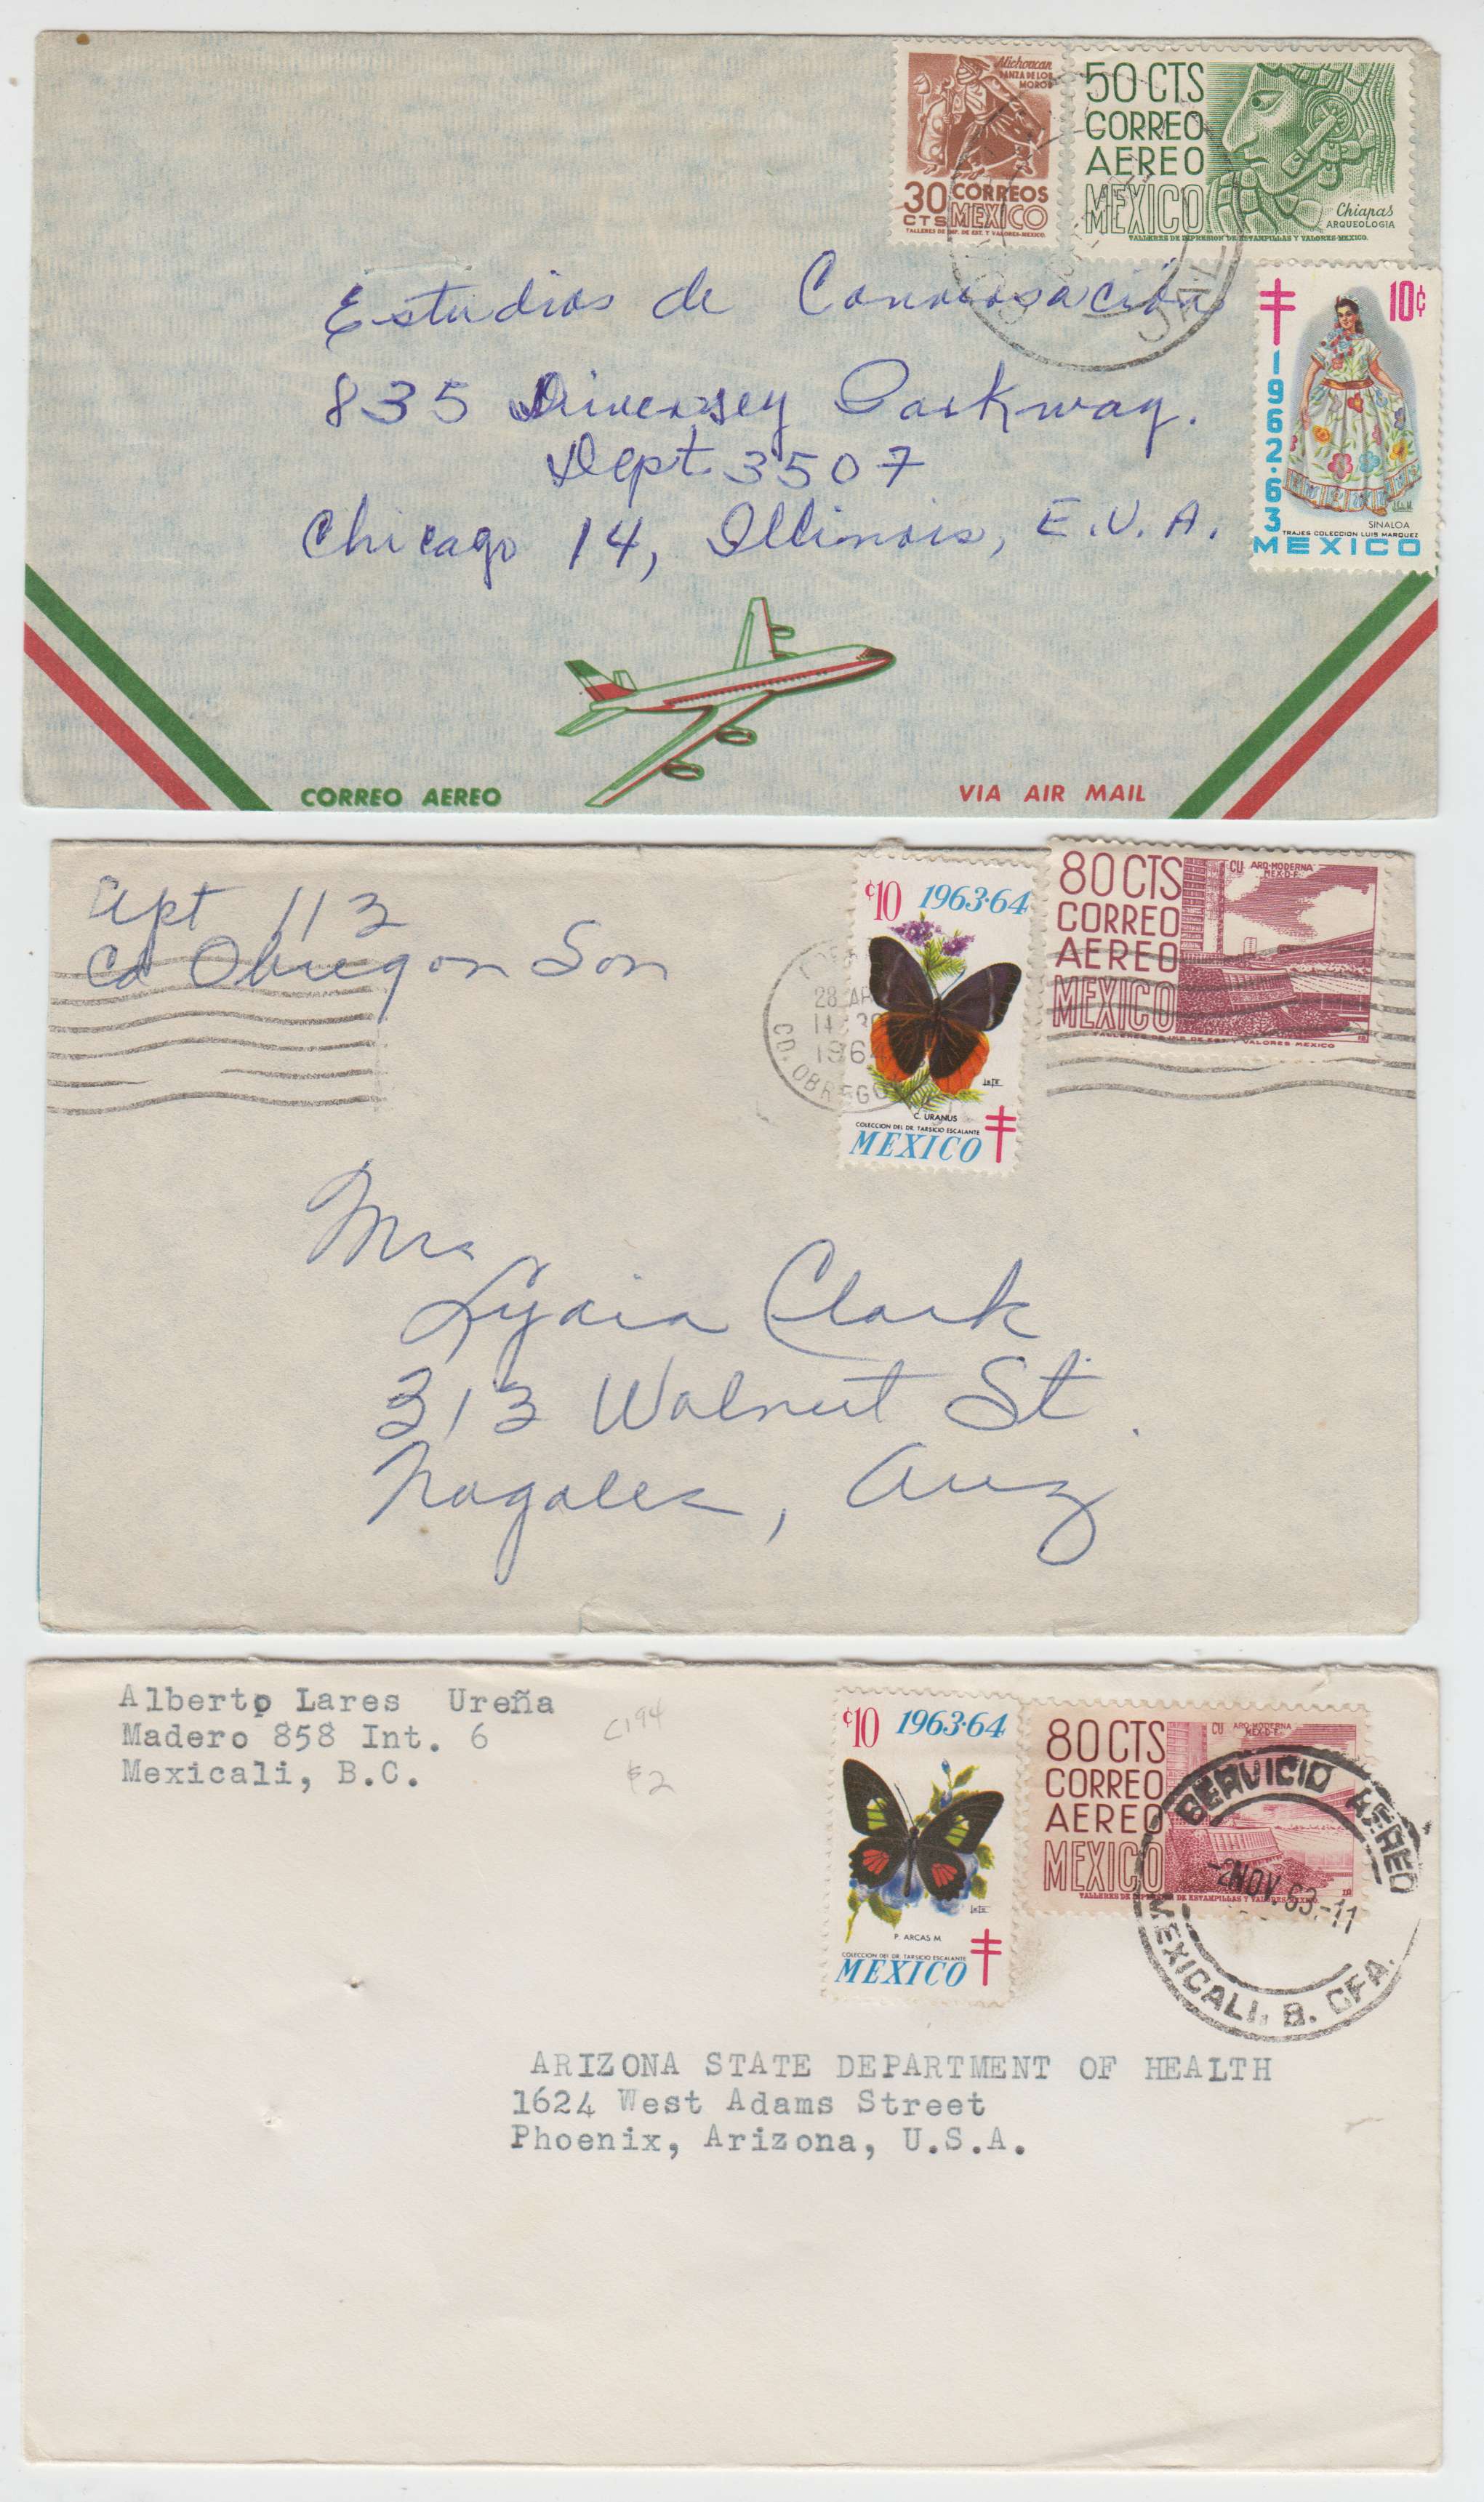 Michoacan
DANZA DE LOS
MOROS
30 CORREOS
CTS MEXICO
TALLERES DE IMP. DE EST. Y VALORES-MEXICO.
50 CTS
CORREO
AEREO
MEXICO
Chiapas
ARQUEOLOGIA
TALLERES DE IMPRESION DE ESTAMPILLAS Y VALORES-MEXICO.
10¢
1962·63
SINALOA
TRAJES COLECCION LUIS MARQUEZ
MEXICO
Estudios de Conversación
835 Diversey Parkway.
Dept. 3507
Chicago 14, Illinois, E.U.A.
CORREO AEREO
VIA AIR MAIL
Apt 113
Cd Obregon Son
28 AB
14 30
196
CD. OBREGO
¢10 1963·64
C. URANUS
COLECCION DEL DR. TARSICIO ESCALANTE
MEXICO
80 CTS
CORREO
AEREO
MEXICO
CU ARQ-MODERNA
MEX-D-F.
TALLERES DE IMP. DE EST. Y VALORES MEXICO
Mrs
Lydia Clark
313 Walnut St.
Nogales, Ariz
Alberto Lares Ureña
Madero 858 Int. 6
Mexicali, B.C.
C194
$2
¢10 1963·64
P. ARCAS M
COLECCION DEL DR. TARSICIO ESCALANTE
MEXICO
80 CTS
CORREO
AEREO
MEXICO
CU ARQ-MODERNA
MEX-D-F.
TALLERES DE IMPRESION DE ESTAMPILLAS Y VALORES-MEXICO
SERVICIO AEREO
-2 NOV. 63.-11
MEXICALI, B. CFA.
ARIZONA STATE DEPARTMENT OF HEALTH
1624 West Adams Street
Phoenix, Arizona, U.S.A.